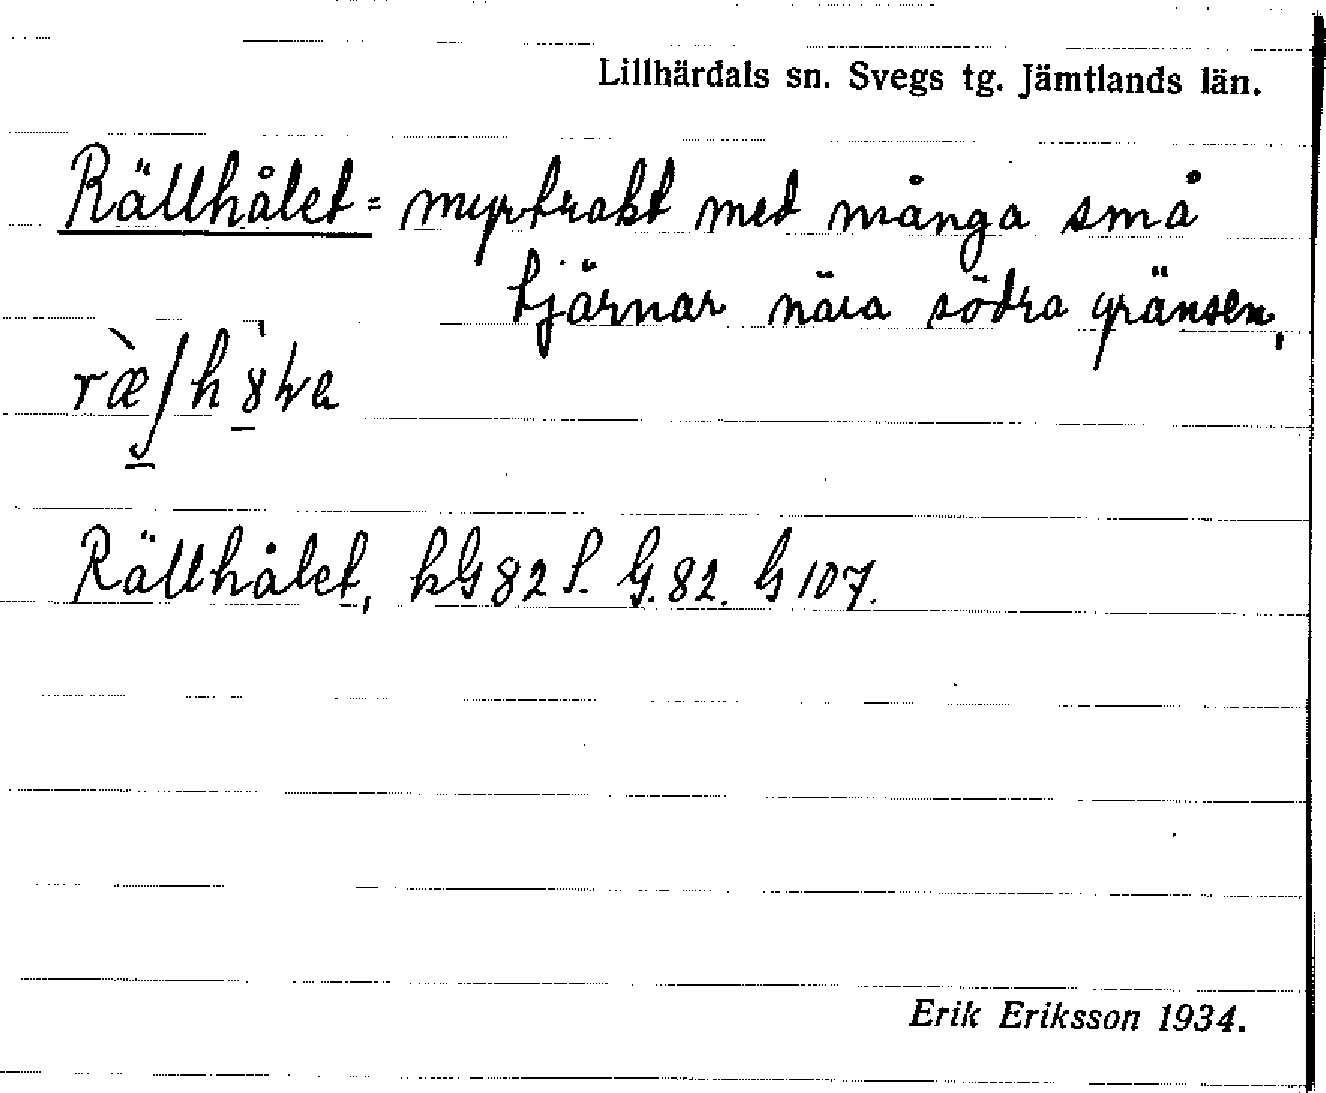 Lillhärdals sn. Svegs tg. Jämtlands län.
Rällhålet = myrtrakt med många små
tjärnar nära södra gränsen.
Rällhålet, kG 82 S. G. 82. G 107.
Erik Eriksson 1934.